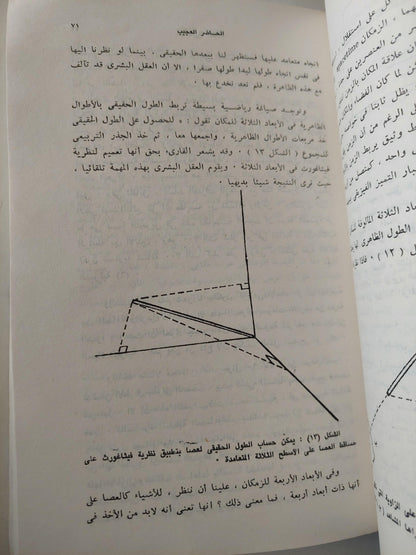 الحاضر العجيب
٧١
اتجاه متعامد عليها فستظهر لنا ببعدها الحقيقى . بينما لو نظرنا اليها
فى نفس اتجاه طولها ليدا طولها صفرا ، الا أن العقل البشرى قد تآلف
مع هذه الظاهرة ، فلم تعد تخدع بها .
وتوجد صياغة رياضية بسيطة تربط الطول الحقيقى بالأطوال
الظاهرية فى الأبعاد الثلاثة للمكان تقول : « للحصول على الطول الحقيقى
خذ مربعات الأطوال الظاهرية ، واجمعها معا ، ثم خذ الجذر التربيعى
للمجموع ( الشكل ١٣ ) . وقد يشعر القارىء بحق أنها تعميم لنظرية
فيثاغورث فى الأبعاد الثلاثة . ويقوم العقل البشرى بهذه المهمة تلقائيا ،
حيث نرى النتيجة شيئا بديهيا .
الشكل (١٣) : يمكن حساب الطول الحقيقى لعصا بتطبيق نظرية فيثاغورث على
مساقط العصا على الأسطح الثلاثة المتعامدة .
وفى الأبعاد الأربعة للزمكان ، علينا أن ننظر ، للأشياء كالعصا على
أنها ذات أبعاد أربعة ، فما معنى ذلك ؟ انها تعنى أنه لابد من الأخذ فى